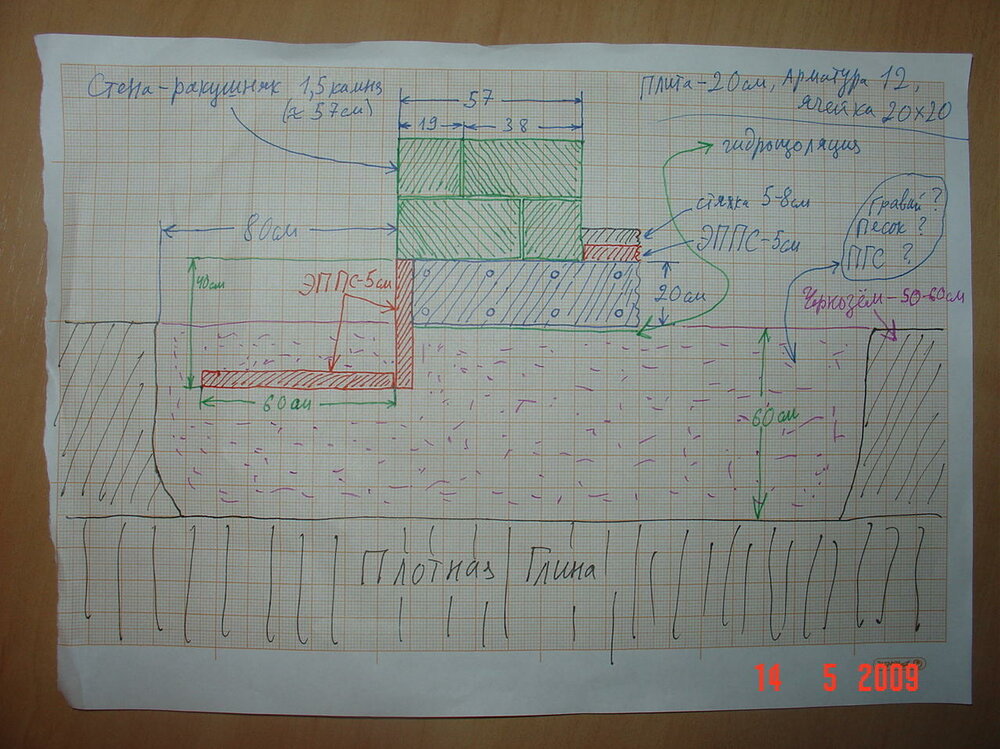 Стена-ракушняк 1,5 камня
(≈ 57см)
57
19
38
Плита-20см, Арматура 12,
ячейка 20×20
гидроизоляция
стяжка 5-8см
ЭППС-5см
Гравий?
Песок?
ПГС?
80см
40см
ЭППС-5см
20см
Чернозём-50-60см
60см
60см
Плотная Глина
14 5 2009